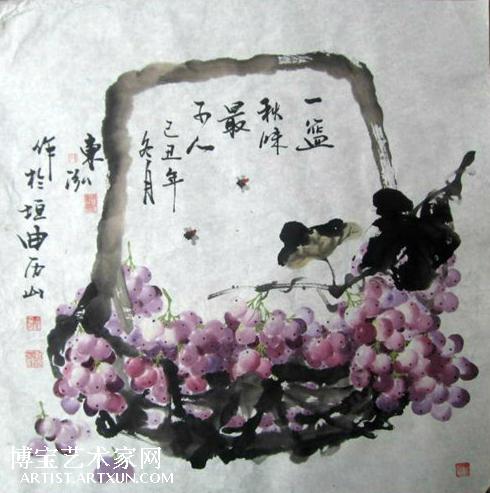 一篮
秋味
最
可人
己丑年
冬月
東泓
作於垣曲历山
博宝艺术家网
ARTIST.ARTXUN.COM